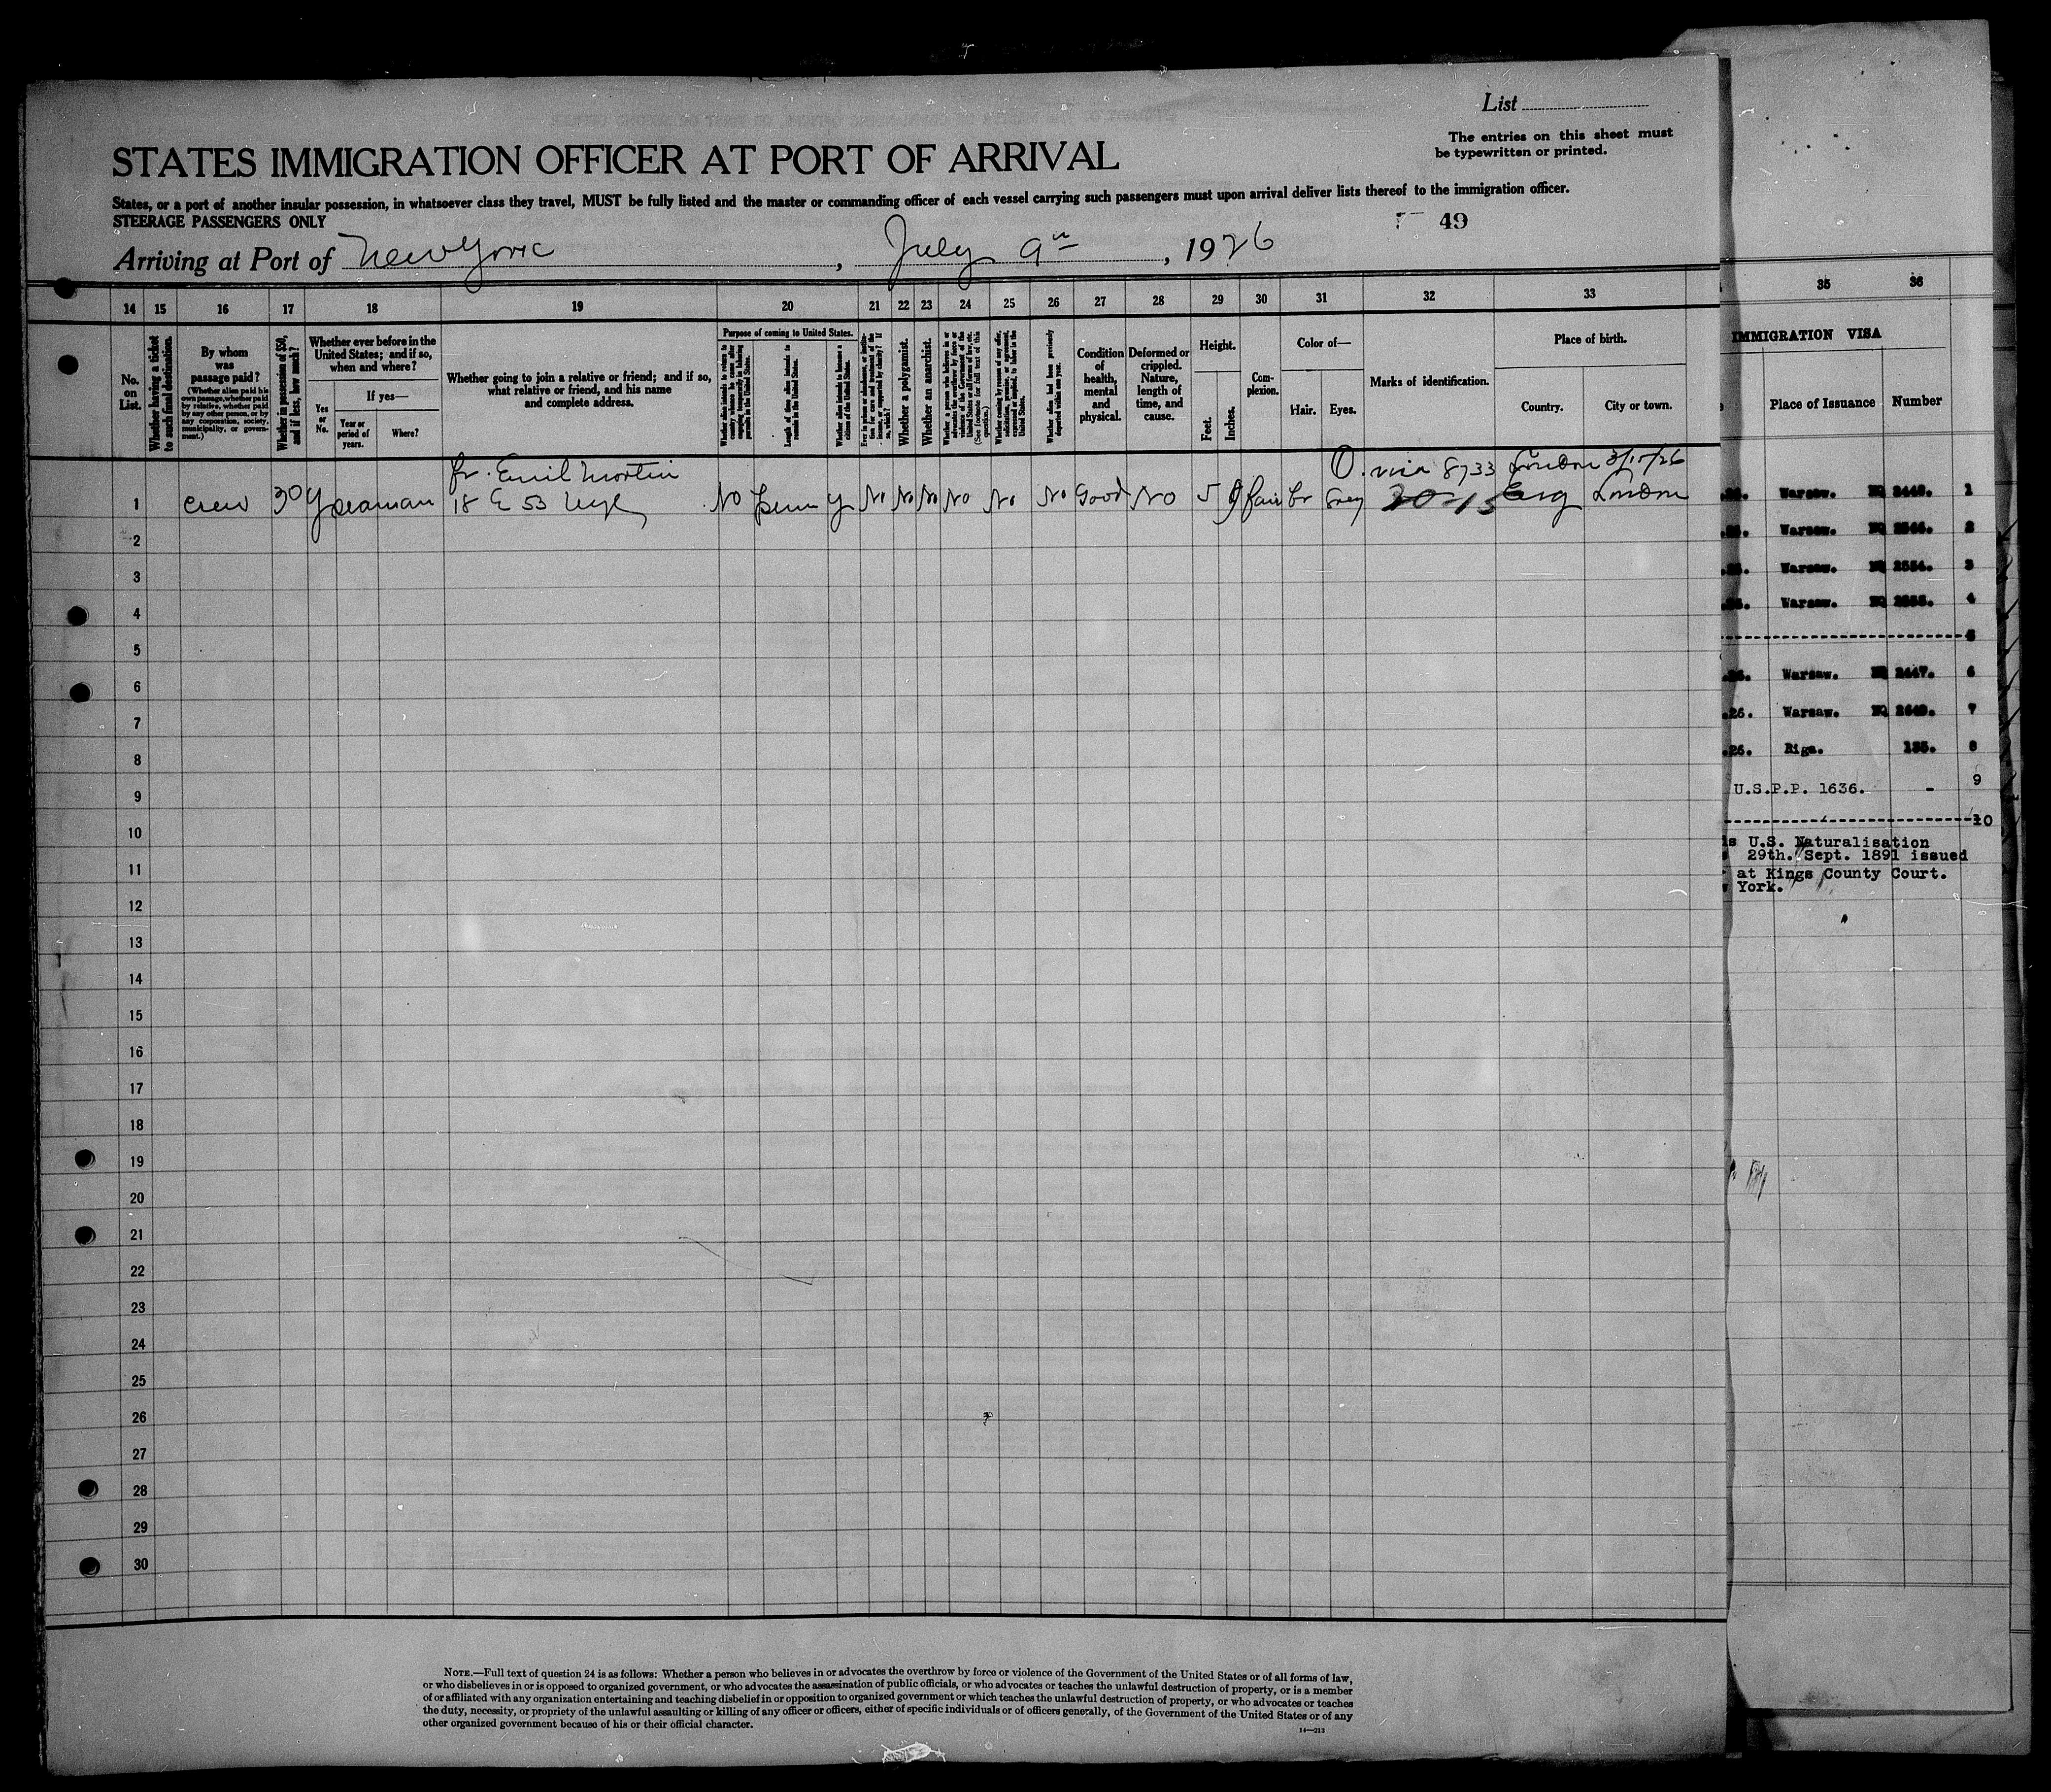 List
The entries on this sheet must
be typewritten or printed.
STATES IMMIGRATION OFFICER AT PORT OF ARRIVAL
States, or a port of another insular possession, in whatsoever class they travel, MUST be fully listed and the master or commanding officer of each vessel carrying such passengers must upon arrival deliver lists thereof to the immigration officer.
STEERAGE PASSENGERS ONLY
49
Arriving at Port of New York, July 9th, 1926
14 15 16 17 18 19 20 21 22 23 24 25 26 27 28 29 30 31 32 33
No. on List.
Whether having a ticket to such final destination.
By whom was passage paid?
(Whether alien paid his own passage, whether paid by relative, whether paid by any other person, or by any corporation, society, municipality, or government.)
Whether in possession of $50, and if less, how much?
Whether ever before in the United States; and if so, when and where?
Yes or No.
If yes—
Year or period of years.
Where?
Whether going to join a relative or friend; and if so, what relative or friend, and his name and complete address.
Purpose of coming to United States.
Length of time alien intends to remain in the United States.
Whether alien intends to become a citizen of the United States.
Whether a polygamist.
Whether an anarchist.
Whether alien had been previously deported within one year.
Condition of health, mental and physical.
Deformed or crippled. Nature, length of time, and cause.
Height.
Feet.
Inches.
Complexion.
Color of—
Hair.
Eyes.
Marks of identification.
Place of birth.
Country.
City or town.
fr. Emil Martin
O. visa 8733 London 3/15/26
1 crew 30 Y seaman 18 E 53 No Perm Y No No No No No No Good No 5 9 fair br Grey Eng London
2
3
4
5
6
7
8
9
10
11
12
13
14
15
16
17
18
19
20
21
22
23
24
25
26
27
28
29
30
NOTE.—Full text of question 24 is as follows: Whether a person who believes in or advocates the overthrow by force or violence of the Government of the United States or of all forms of law,
or who disbelieves in or is opposed to organized government, or who advocates the assassination of public officials, or who advocates or teaches the unlawful destruction of property, or is a member
of or affiliated with any organization entertaining and teaching disbelief in or opposition to organized government or which teaches the unlawful destruction of property, or who advocates or teaches
the duty, necessity, or propriety of the unlawful assaulting or killing of any officer or officers, either of specific individuals or of officers generally, of the Government of the United States or of any
other organized government because of his or their official character.
14—213
35 36
IMMIGRATION VISA
Place of Issuance Number
Warsaw. 1
Warsaw. 2
Warsaw. 3
Warsaw. 4
5
Warsaw. 6
.26. Warsaw. 7
.26. Riga. 135. 8
U.S.P.P. 1636. - 9
10
U.S. Naturalisation
29th. Sept. 1891 issued
at Kings County Court.
York.